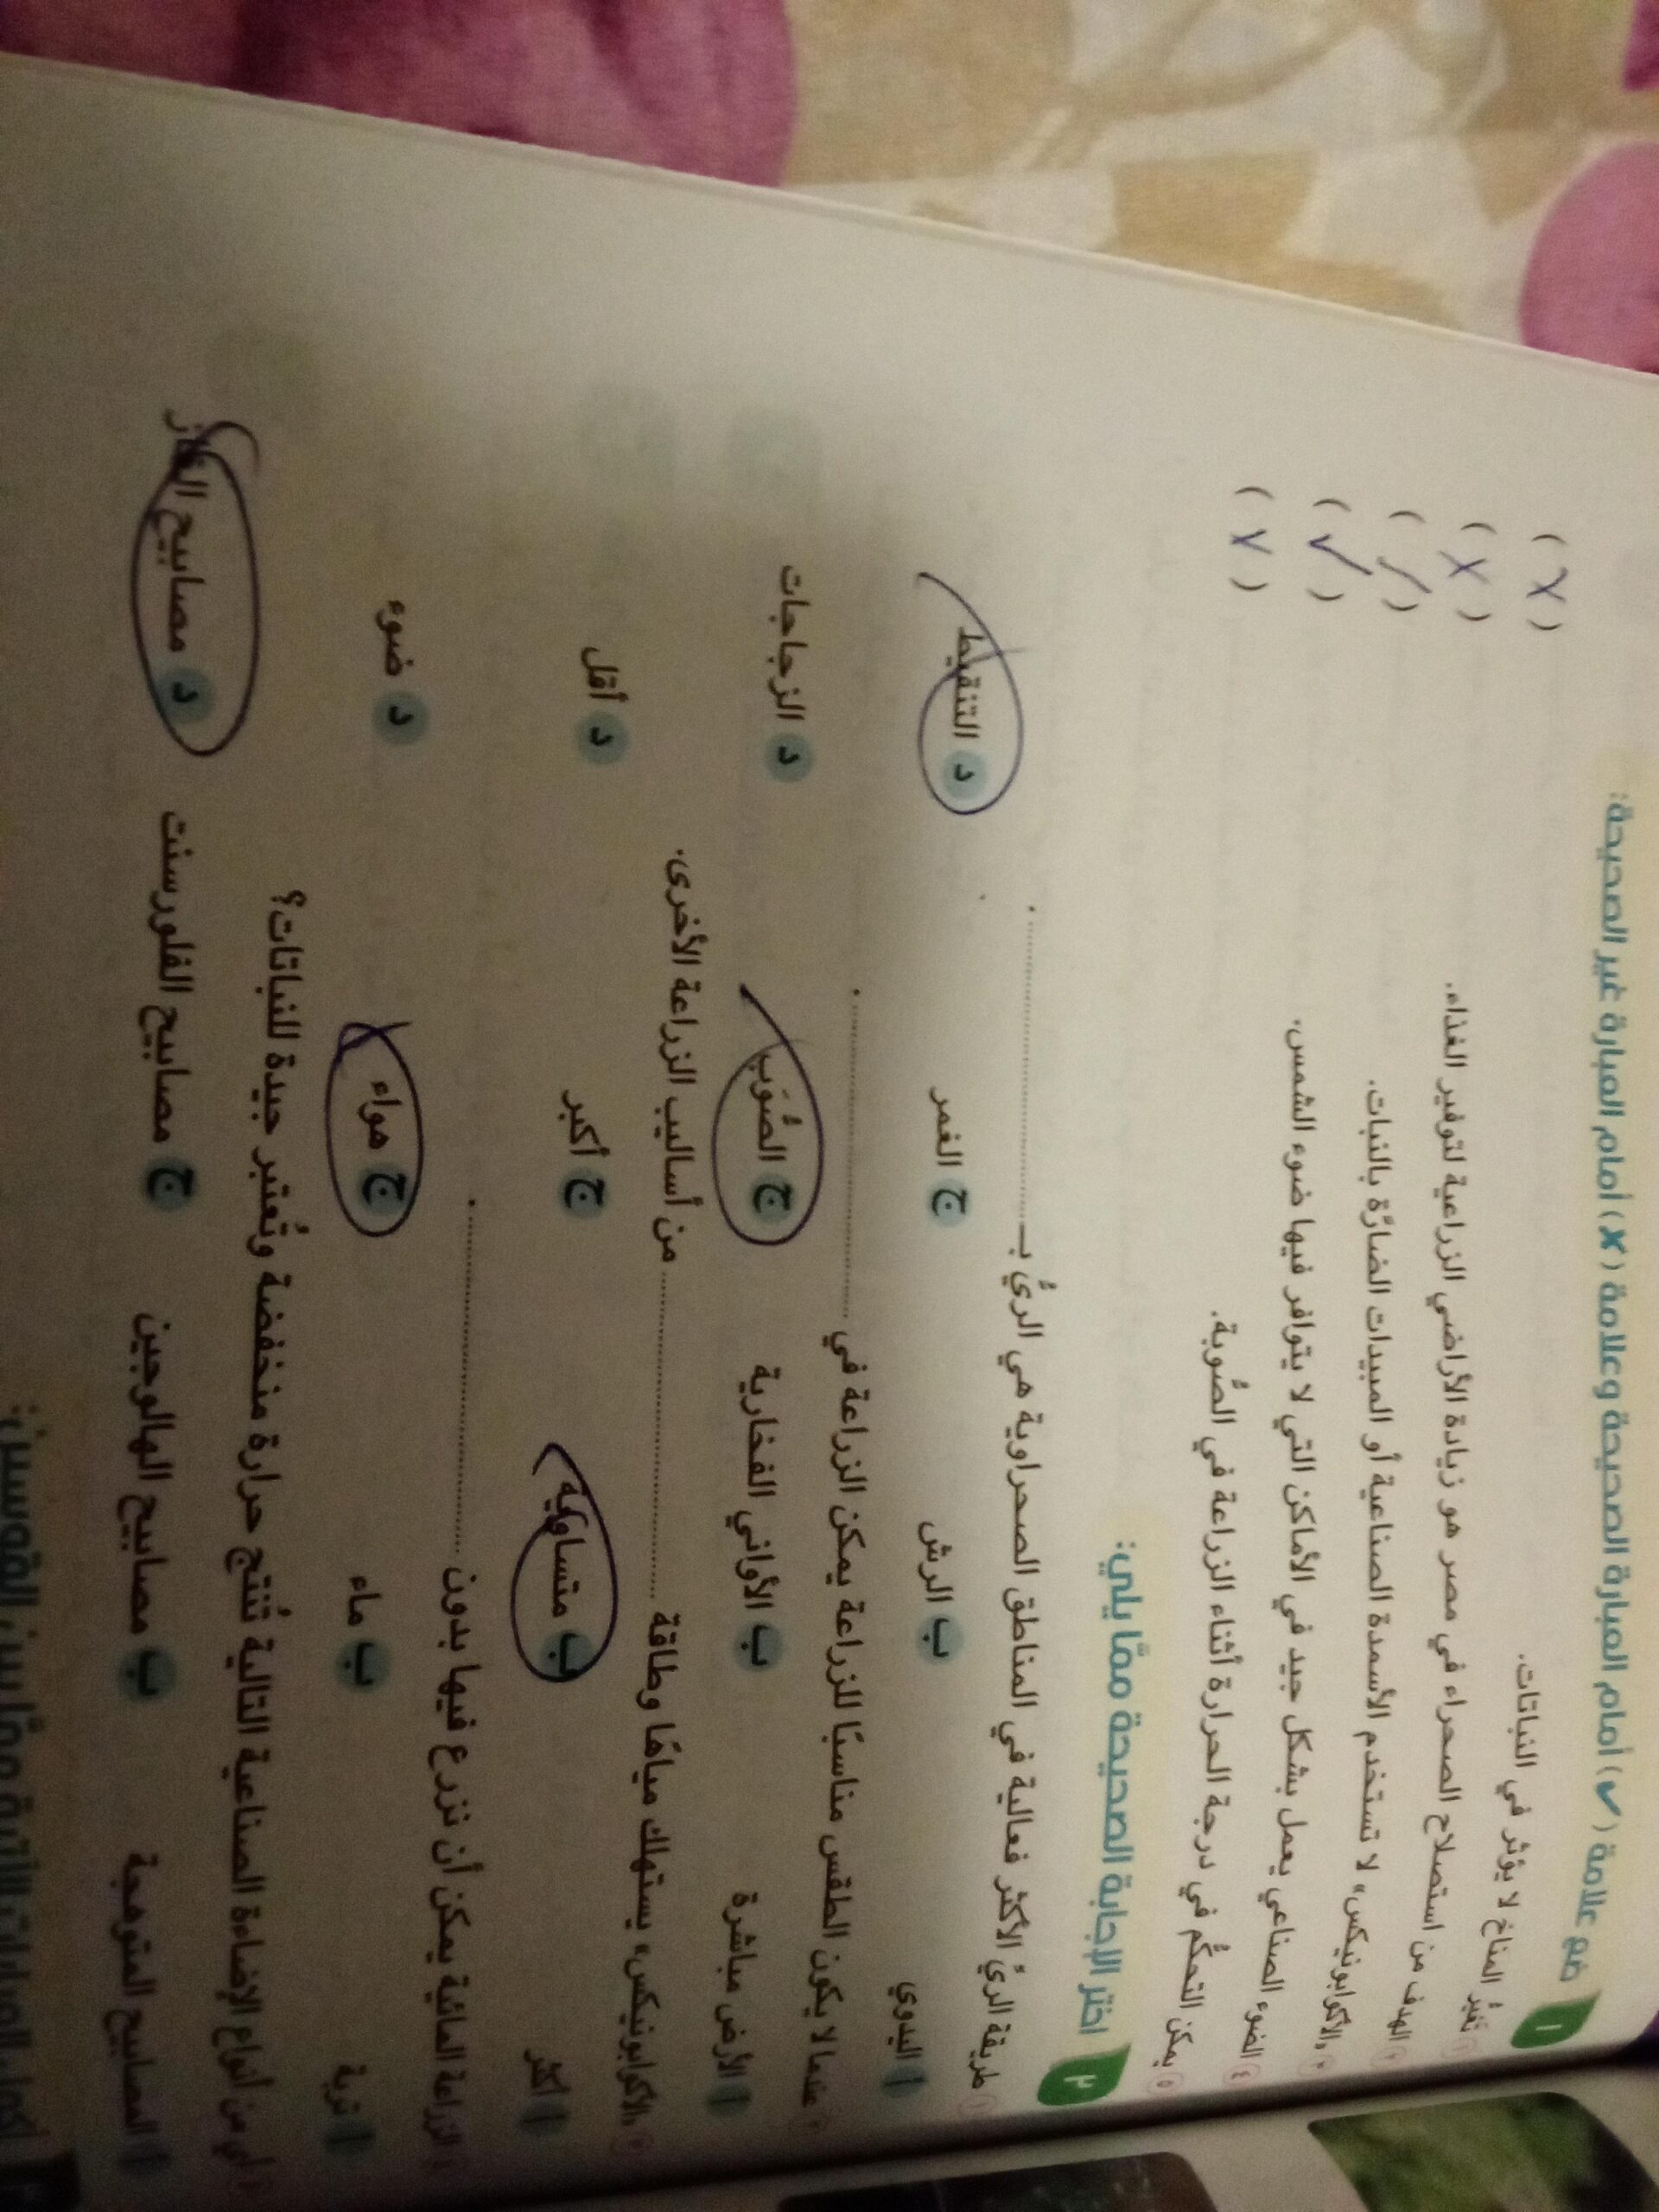 ١ ضع علامة (✔) أمام العبارة الصحيحة وعلامة (✘) أمام العبارة غير الصحيحة:
١ تغيُّر المناخ لا يؤثر في النباتات. (✗)
٢ الهدف من استصلاح الصحراء في مصر هو زيادة الأراضي الزراعية لتوفير الغذاء. (✗)
٣ «الأكوابونيكس» لا تستخدم الأسمدة الصناعية أو المبيدات الضارَّة بالنبات. (✓)
٤ الضوء الصناعي يعمل بشكل جيد في الأماكن التي لا يتوافر فيها ضوء الشمس. (✓)
٥ يمكن التحكُّم في درجة الحرارة أثناء الزراعة في الصُّوبة. (✗)
٢ اختر الإجابة الصحيحة ممَّا يلي:
١ طريقة الريِّ الأكثر فعالية في المناطق الصحراوية هي الريُّ بـ ............ .
أ اليدوي ب الرش ج الغمر د التنقيط
٢ عندما لا يكون الطقس مناسبًا للزراعة يمكن الزراعة في ............ .
أ الأرض مباشرة ب الأواني الفخارية ج الصُّوَب د الزجاجات
٣ «الأكوابونيكس» يستهلك مياهًا وطاقة ............ من أساليب الزراعة الأخرى.
أ أكثر ب متساوية ج أكبر د أقل
الزراعة المائية يمكن أن نزرع فيها بدون ............ .
أ تربة ب ماء ج هواء د ضوء
أي من أنواع الإضاءة الصناعية التالية تُنتج حرارة منخفضة وتُعتبر جيدة للنباتات؟
أ المصابيح المتوهجة ب مصابيح الهالوجين ج مصابيح الفلورسنت د مصابيح الغاز